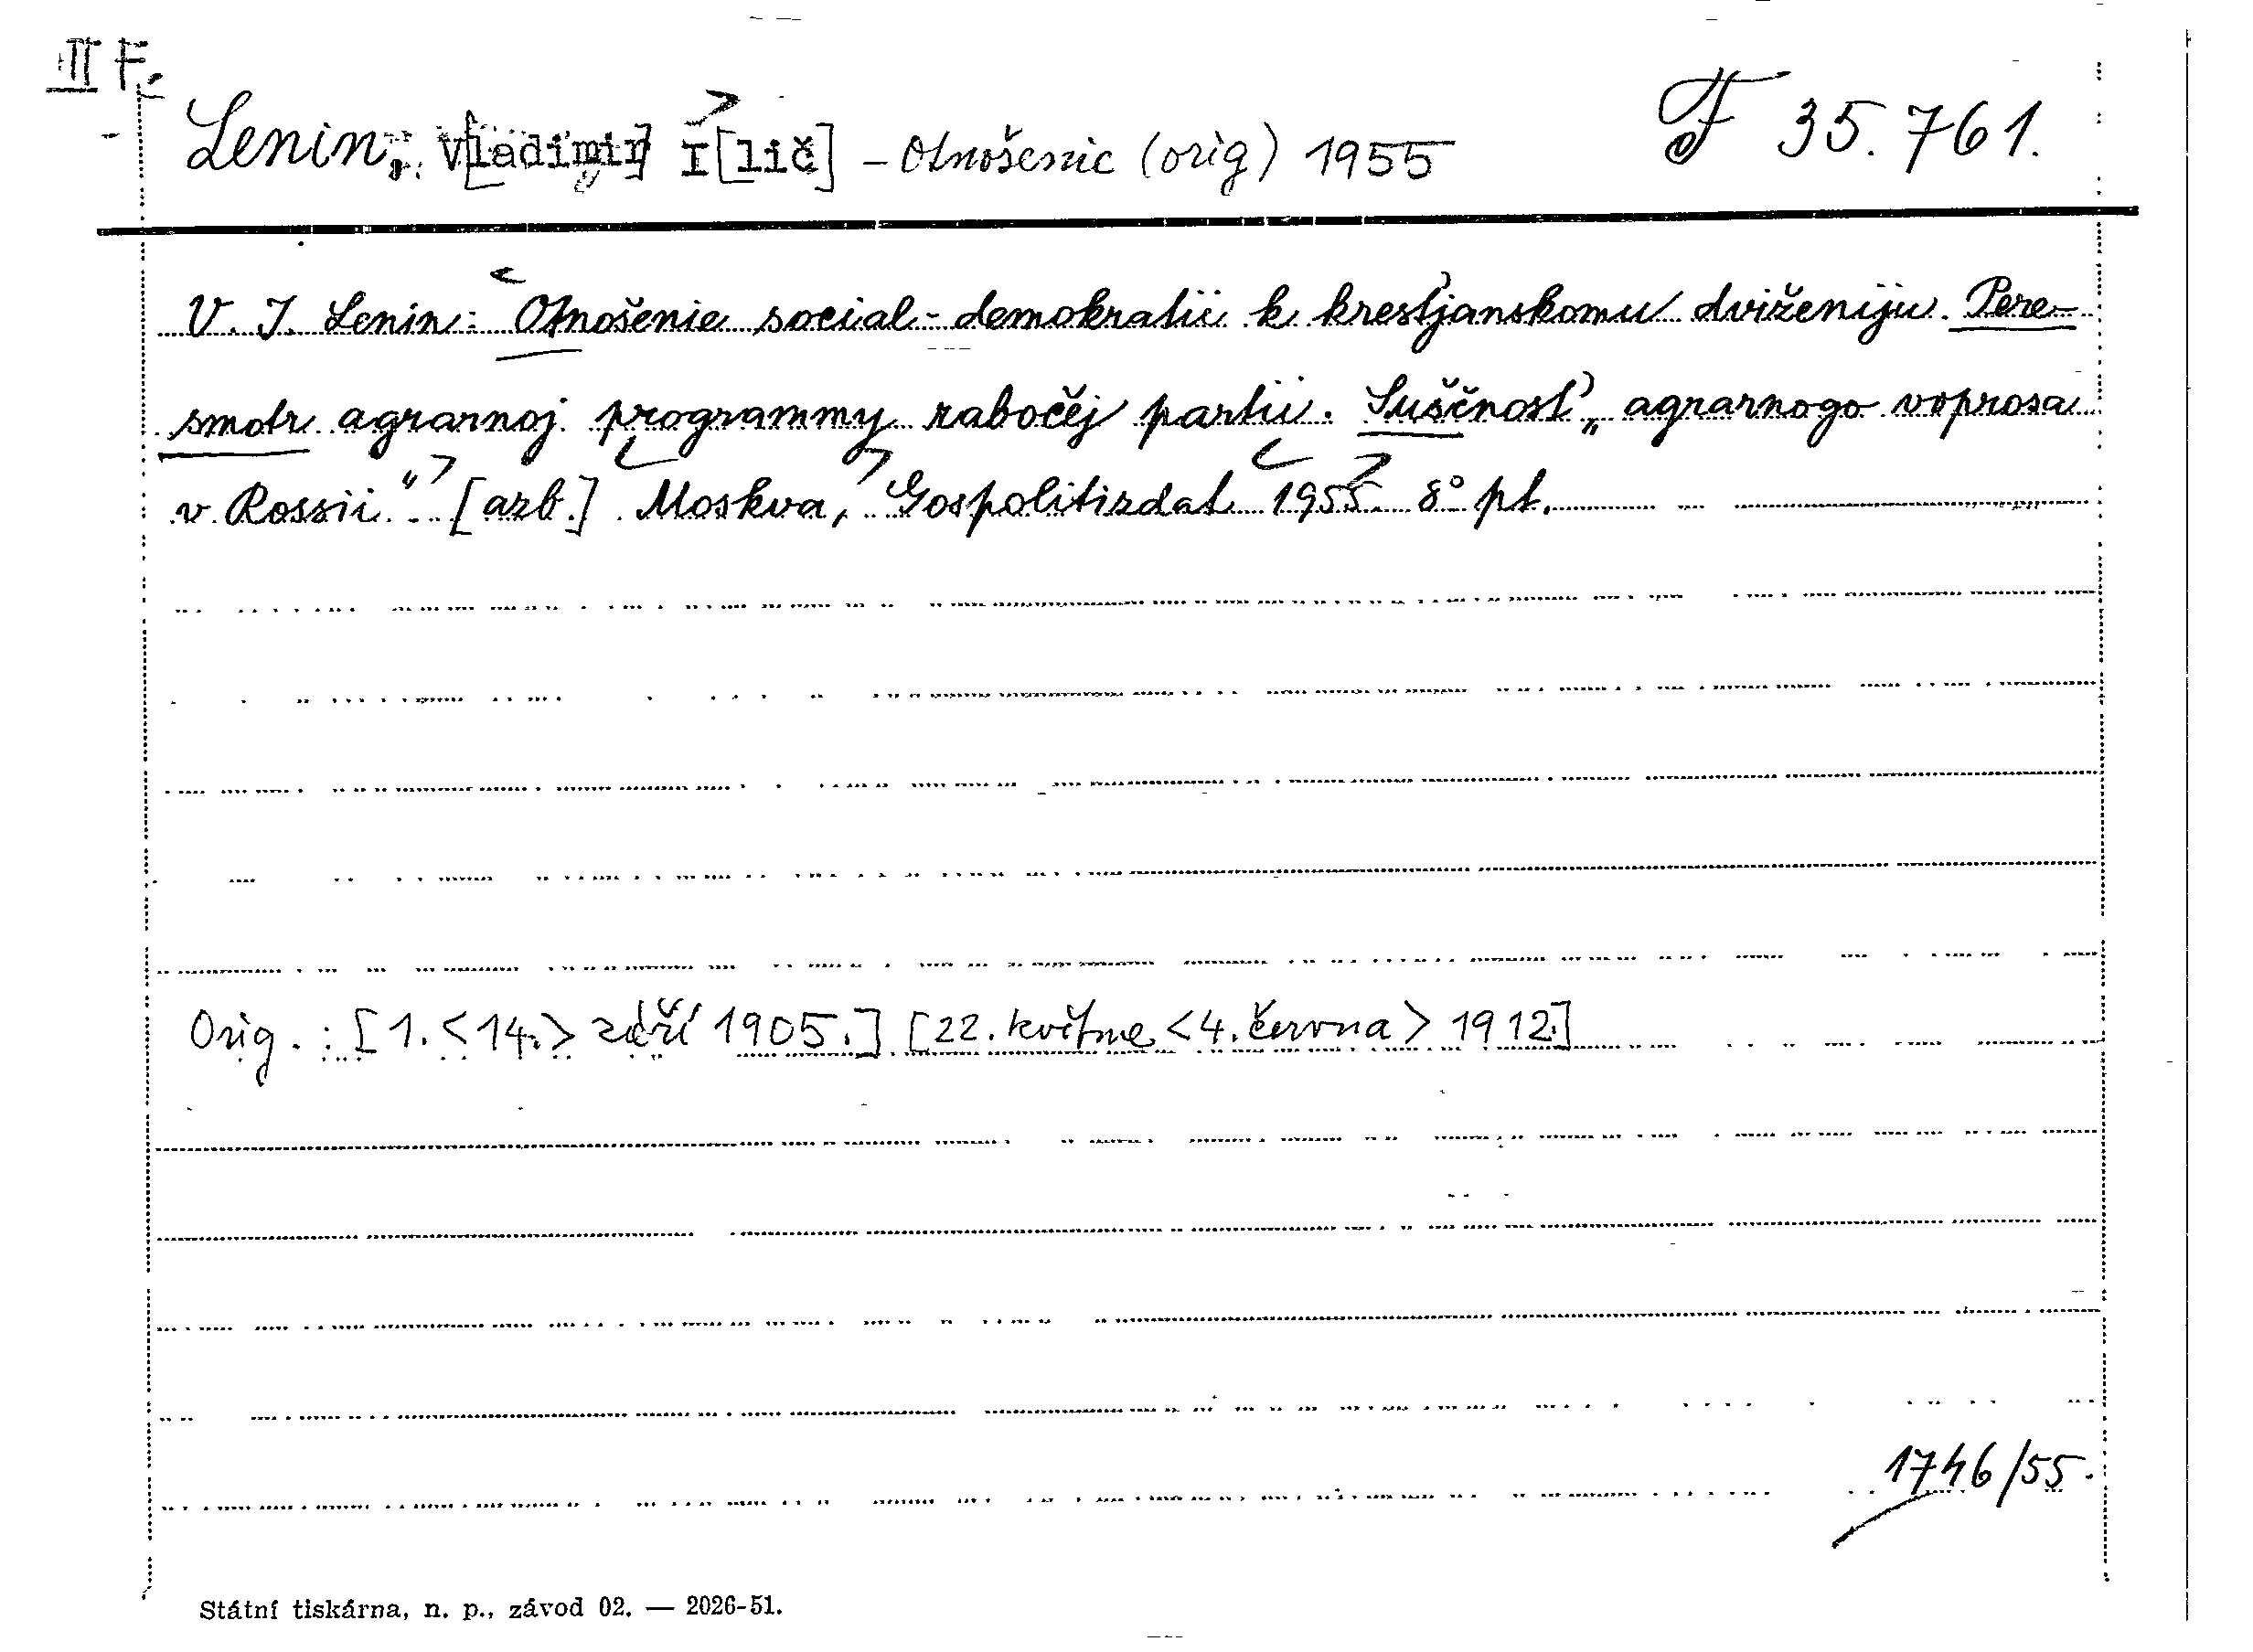 III F.
Lenin, V[ladimir] I[lič] – Otnošenie (orig) 1955 F 35.761.
V. I. Lenin: Otnošenie social-demokratii k krest'janskomu dviženiju. Pere-
smotr agrarnoj programmy rabočej partii. Suščnost' „agrarnogo voprosa
v Rossii“. [azb.] Moskva, Gospolitizdat 1955. 8° pt.
Orig.: [1. <14.> září 1905.] [22. května <4. června> 1912.]
1746/55.
Státní tiskárna, n. p., závod 02. — 2026-51.